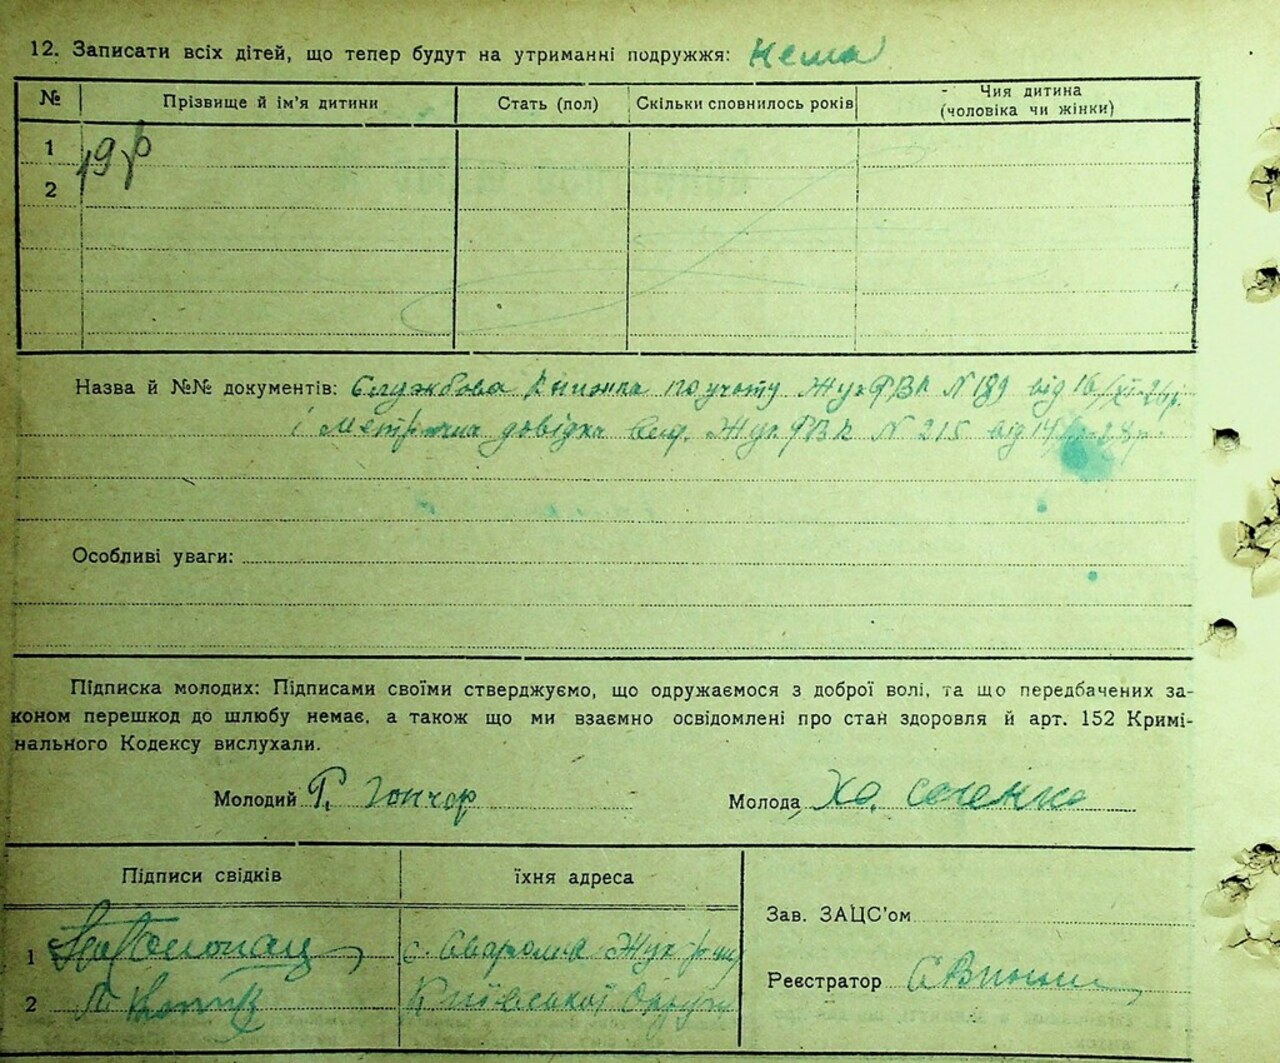 12. Записати всіх дітей, що тепер будут на утриманні подружжя: Нема
№ Прізвище й ім'я дитини Стать (пол) Скільки сповнилось років Чия дитина
(чоловіка чи жінки)
1
19 р
2
Назва й №№ документів: Службова Книжка по учоту Жук ФВК N 189 від 16/XI-26р.
і Метрична довідка Вид. Жук. ФВК N 215 від
Особливі уваги:
Підписка молодих: Підписами своїми стверджуємо, що одружаємося з доброї волі, та що передбачених за-
коном перешкод до шлюбу немає, а також що ми взаємно освідомлені про стан здоровля й арт. 152 Кримі-
нального Кодексу вислухали.
Молодий Г. Гончор Молода Хо.
Підписи свідків їхня адреса
Зав. ЗАЦС'ом
1 с. Жук р-ну
Реєстратор
2 Київської Округи